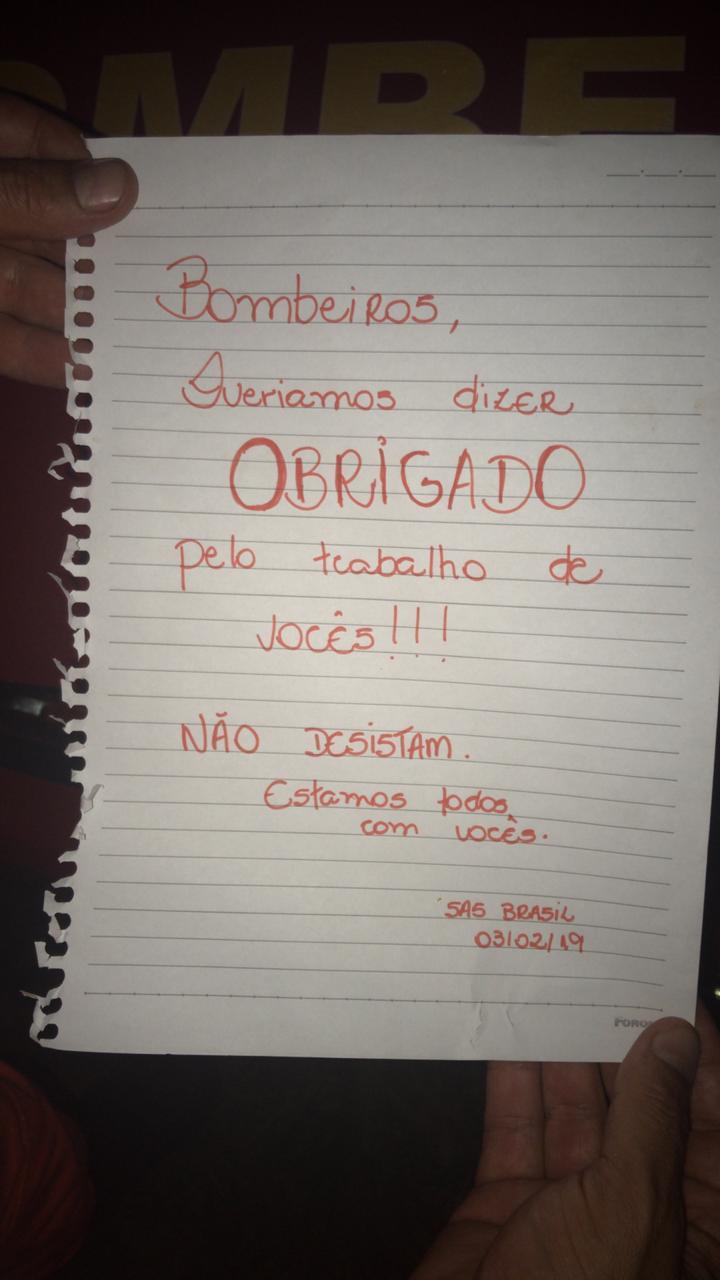 OMBE
Bombeiros,
Queriamos dizER
OBRIGADO
pelo trabalho de
vocês!!!
NÃO DESiSTAM.
Estamos todos
com vocês.
SAS BRASiL
03/02/19